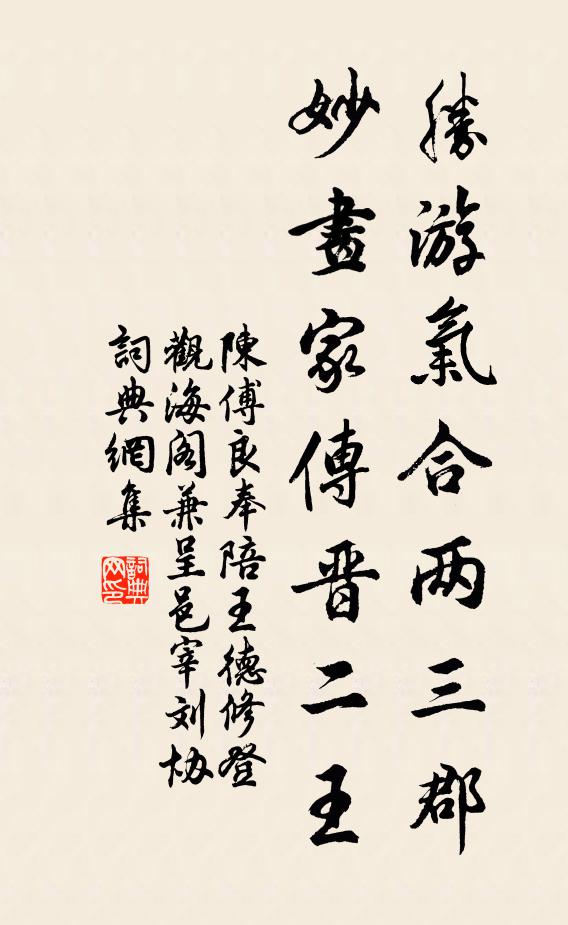 勝游氣合两三郡
妙畫家傳晋二王
陳傅良奉陪王德修登
觀海阁兼呈邑宰刘協
詞典網集
詞典
网印